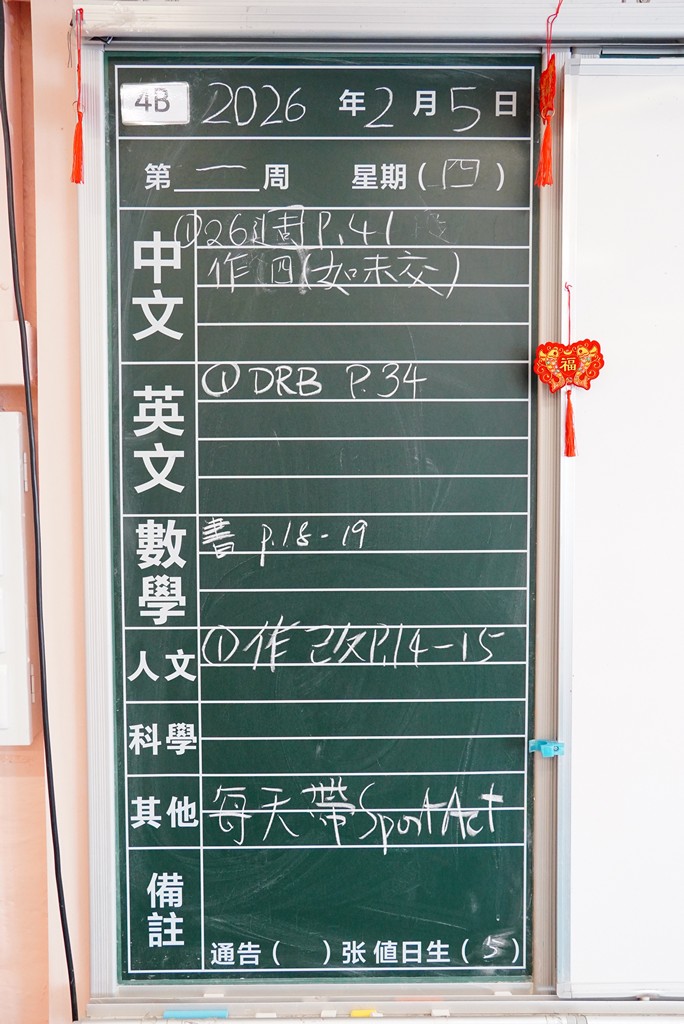 4B 2026 年 2 月 5 日
第 一 周 星期 ( 四 )
中文 ① 26週 P.41
作四(如未交)
英文 ① DRB P.34
數學 書 p.18-19
人文 ① 作改P.14-15
科學
其他 每天帶Sport Act
備註
通告 ( ) 张 值日生 ( 5 )
福